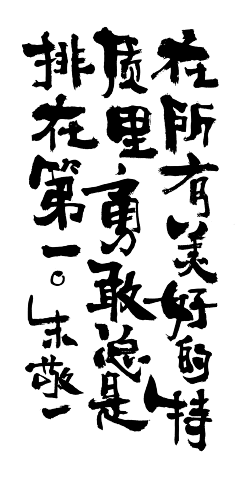 在所有美好的特
质里勇敢总是
排在第一。朱敬一